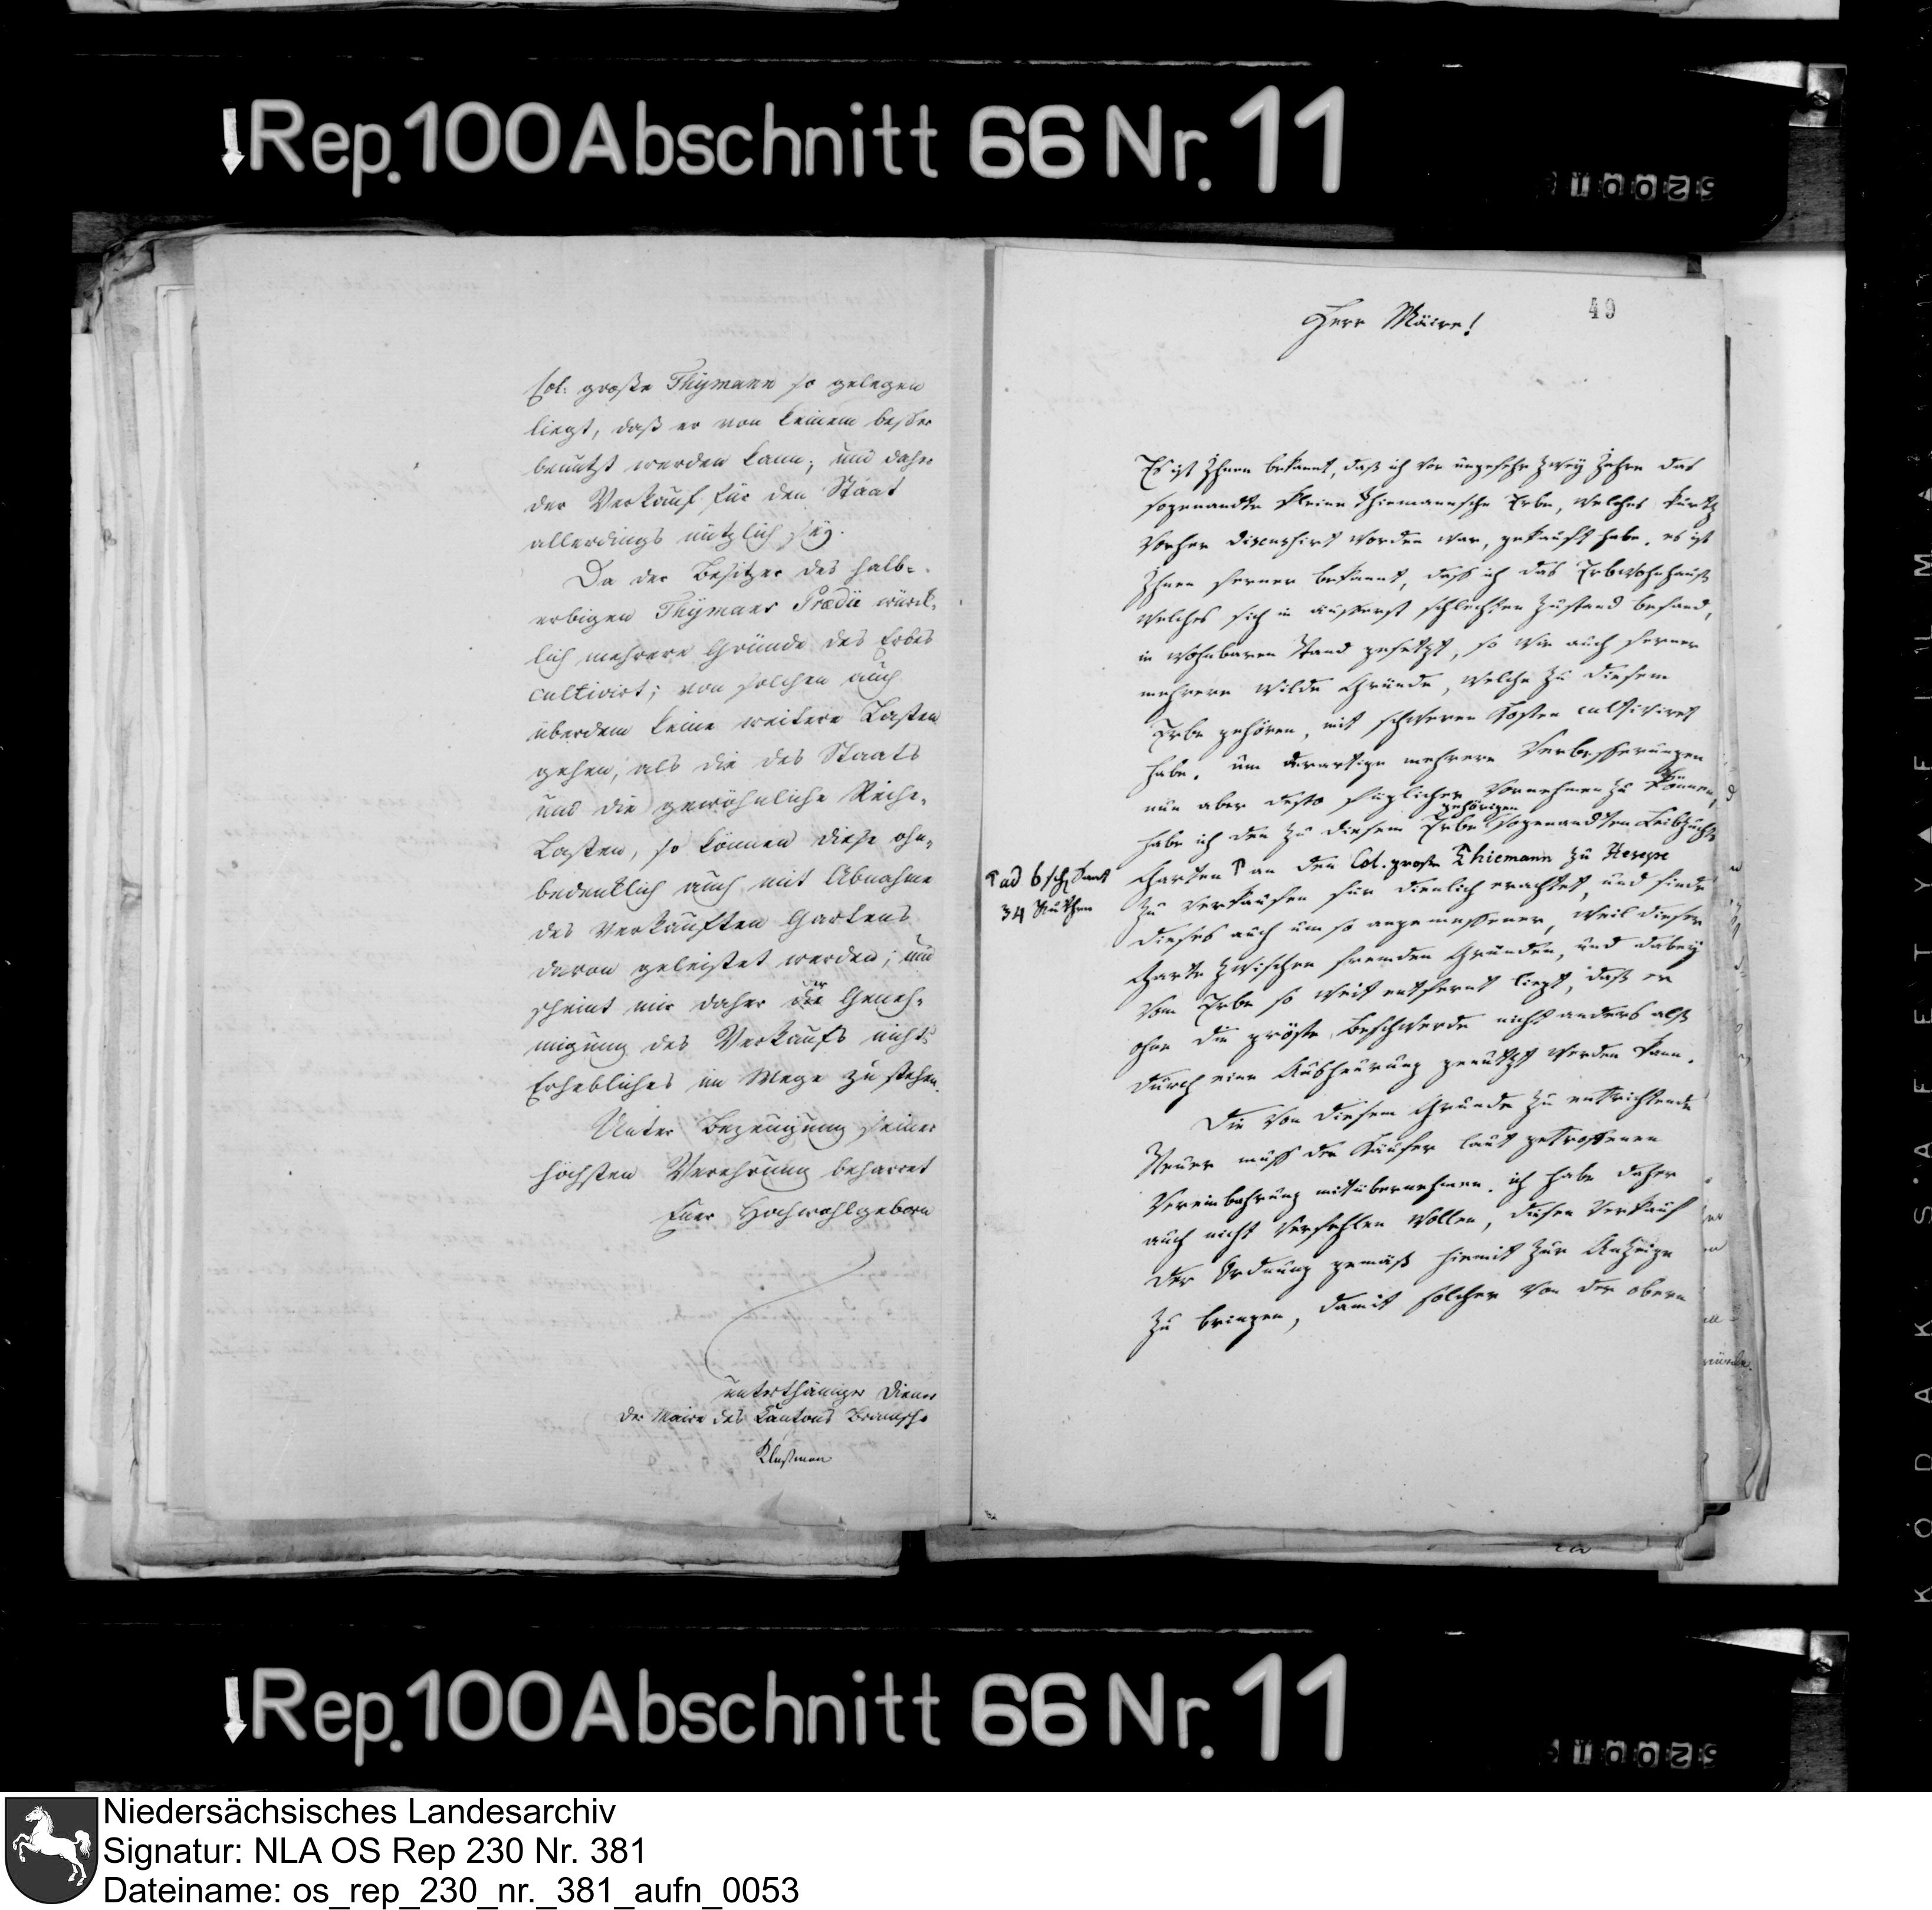 Rep. 100 Abschnitt 66 Nr. 11
Col: große Thÿmann so gelegen
liegt, daß er von keinem besser
benutzt werden kann; und daher
der Verkauf für den Staat
allerdings nützlich seÿ.
Da der Besitzer des halb-
erbigen Thÿmans Prædii würk-
lich mehrere Gründe des Erbes
cultivirt; von solchen auch
überdem keine weitere Lasten
gehen, als die des Staats
und die gewöhnliche Reihe-
Lasten, so können diese ohn-
bedenklich auch mit Abnahme
des verkauften Gartens
davon geleistet werden; und
scheint mir daher der Geneh-
migung des Verkaufs nichts
Erhebliches im Wege zu stehen.
Unter Bezeugung seiner
höchsten Verehrung beharret
Euer Hochwohlgeborn
unterthäniger Diener
der Maire des Cantons Bramsche
Klußmann
49
Herr Maire!
Es ist Ihnen bekannt, daß ich vor ungefehr zweÿ Jahren das
sogenandte kleine Thiemannsche Erbe, welches kurtz
vorher discussirt worden war, gekauft habe. es ist
Ihnen ferner bekannt, daß ich das Erbwohnhauß
welches sich in äusserst schlechten Zustand befand,
in wohnbaren Stand gesetzt, so wie auch ferner
mehrere wilde Gründe, welche zu diesem
Erbe gehören, mit schweren Kosten cultiviret
habe. um derartige mehrere Verbesserungen
nun aber desto füglicher vornehmen zu können,
habe ich den zu diesem Erbe gehörigen sogenandten Leibzuchts
Garten ↑ an den Col. große Thiemann zu Hesepe
↑ ad 6 sch Saat
34 Ruthen
zu verkaufen für dienlich erachtet, und finde
dieses auch um so angemessener, weil dieser
Garte zwischen fremden Gründen, und dabeÿ
vom Erbe so weit entfernt liegt, daß er
ohne die gröste Beschwerde nicht anders alß
durch eine Ausheurung genutzt werden kann.
Die von diesem Grunde zu entrichtende
Steuer muß der Käufer laut getroffenen
Vereinbahrung mitübernehmen. ich habe daher
auch nicht verfehlen wollen, diesen Verkauf
der Ordnung gemäß hiemit zur Anzeige
zu bringen, damit solcher von der obern
Rep. 100 Abschnitt 66 Nr. 11
Niedersächsisches Landesarchiv
Signatur: NLA OS Rep 230 Nr. 381
Dateiname: os_rep_230_nr._381_aufn_0053